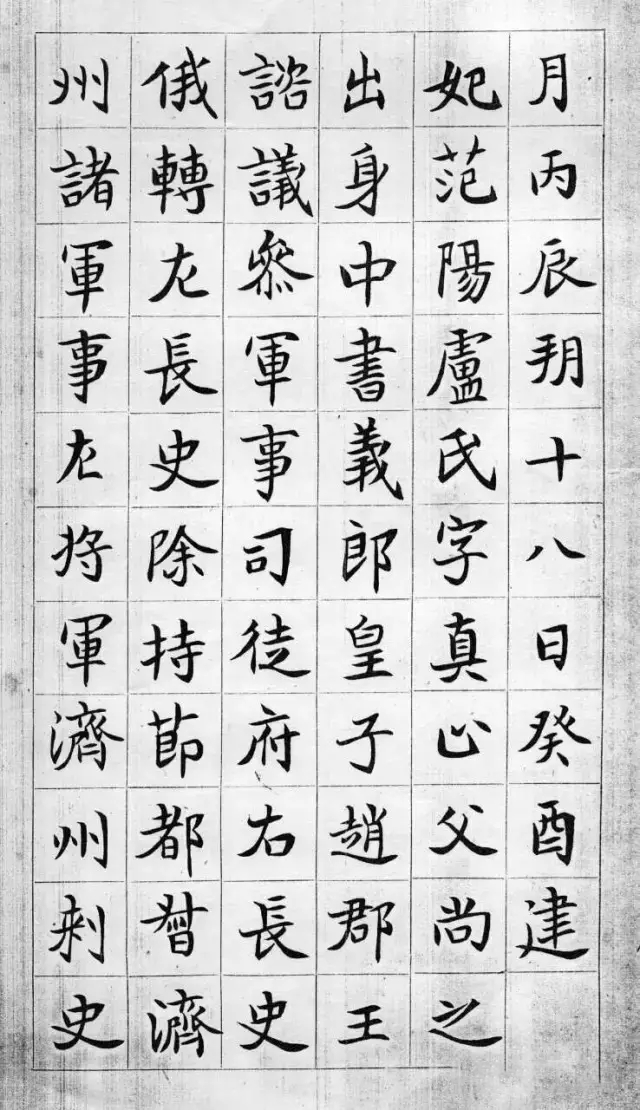 月丙辰朔十八日癸酉建
妃范陽盧氏字真心父尚之
出身中書義郎皇子趙郡王
諮議叅軍事司徒府右長史
俄轉左長史除持節都督濟
州諸軍事左将軍濟州刺史